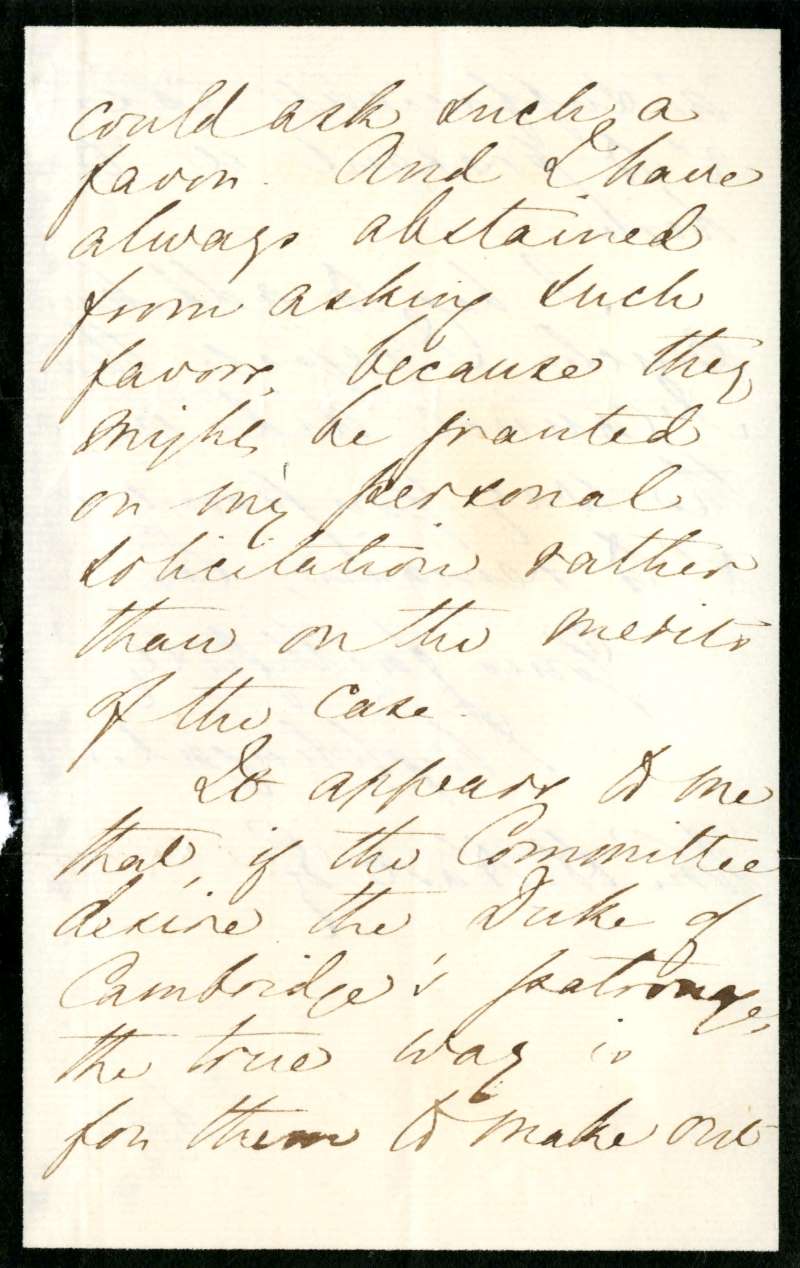 could ask such a
favor. And I have
always abstained
from asking such
favors, because they
might be granted
on my personal
solicitation rather
than on the merits
of the case.
It appears to me
that, if the Committee
desire the Duke of
Cambridge's patronage,
the true way is
for them to make out